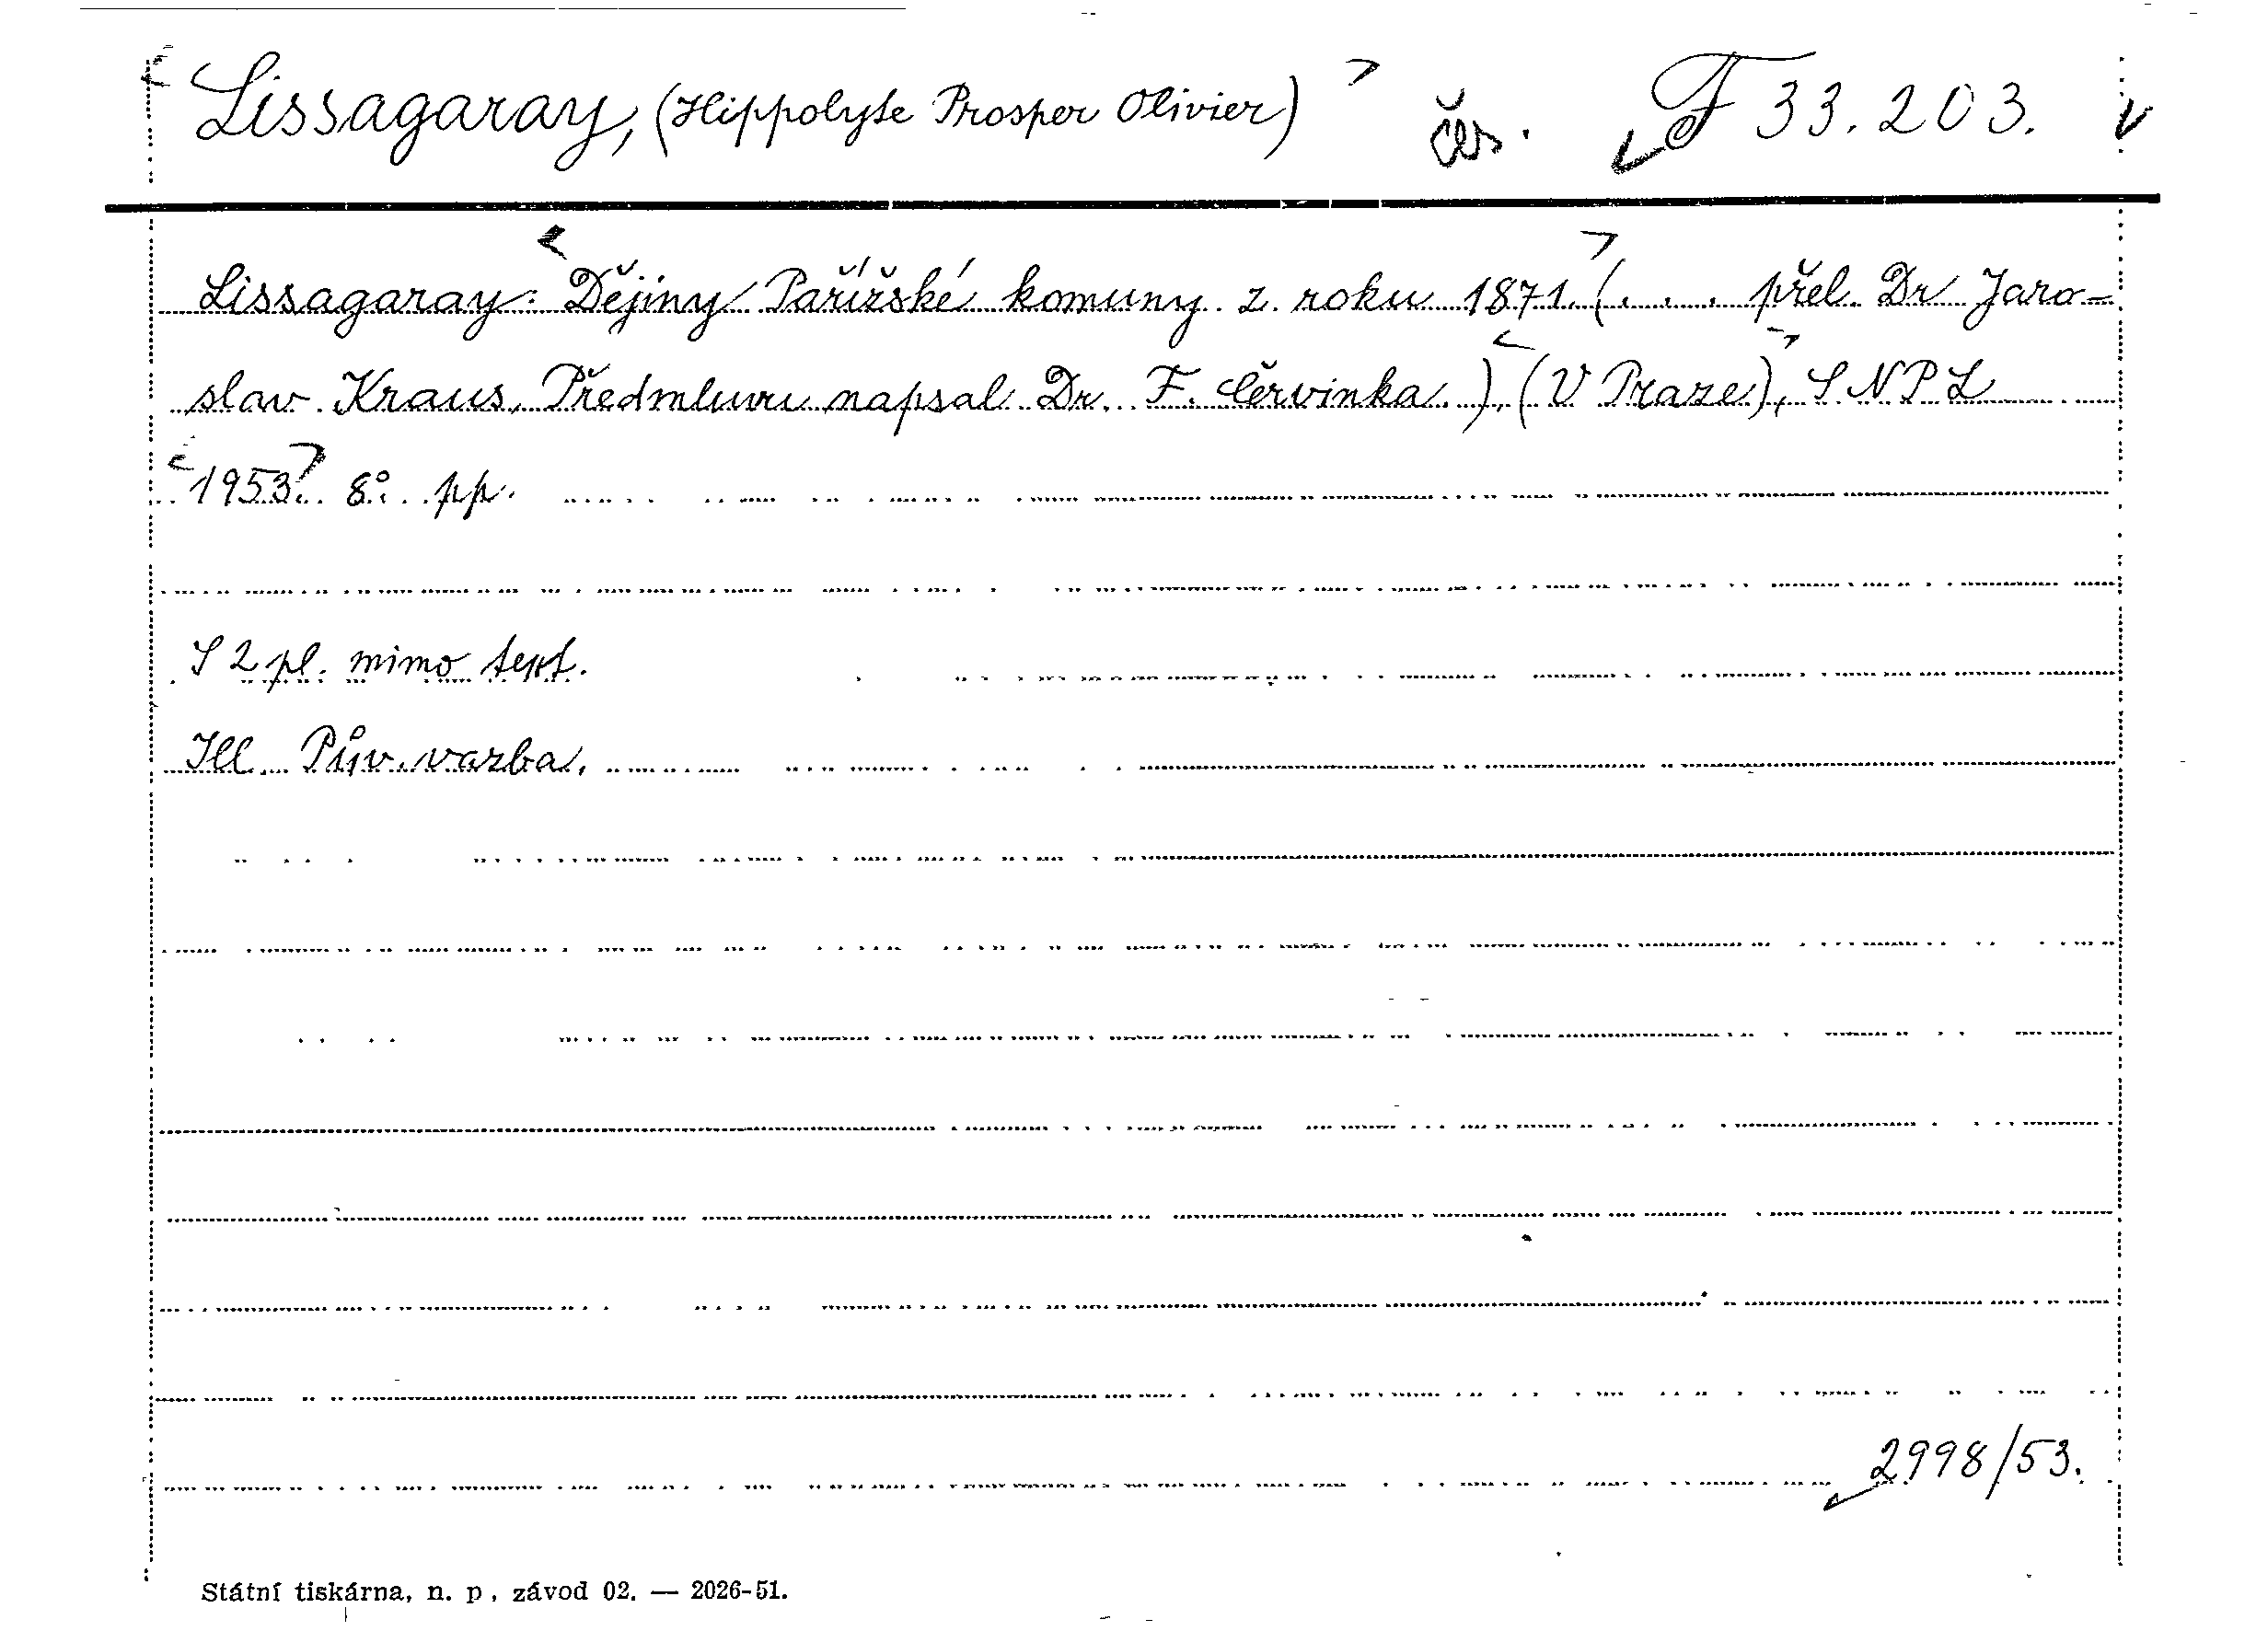 Lissagaray, (Hippolyte Prosper Olivier) čes. F 33.203.
Lissagaray: Dějiny Pařížské komuny z roku 1871. (. . . . přel. Dr Jaro-
slav Kraus. Předmluvu napsal Dr. F. Červinka.), (V Praze), SNPL
1953. 8°. pp.
S 2 pl. mimo text.
Ill. Pův. vazba.
2998/53.
Státní tiskárna, n. p., závod 02. — 2026-51.